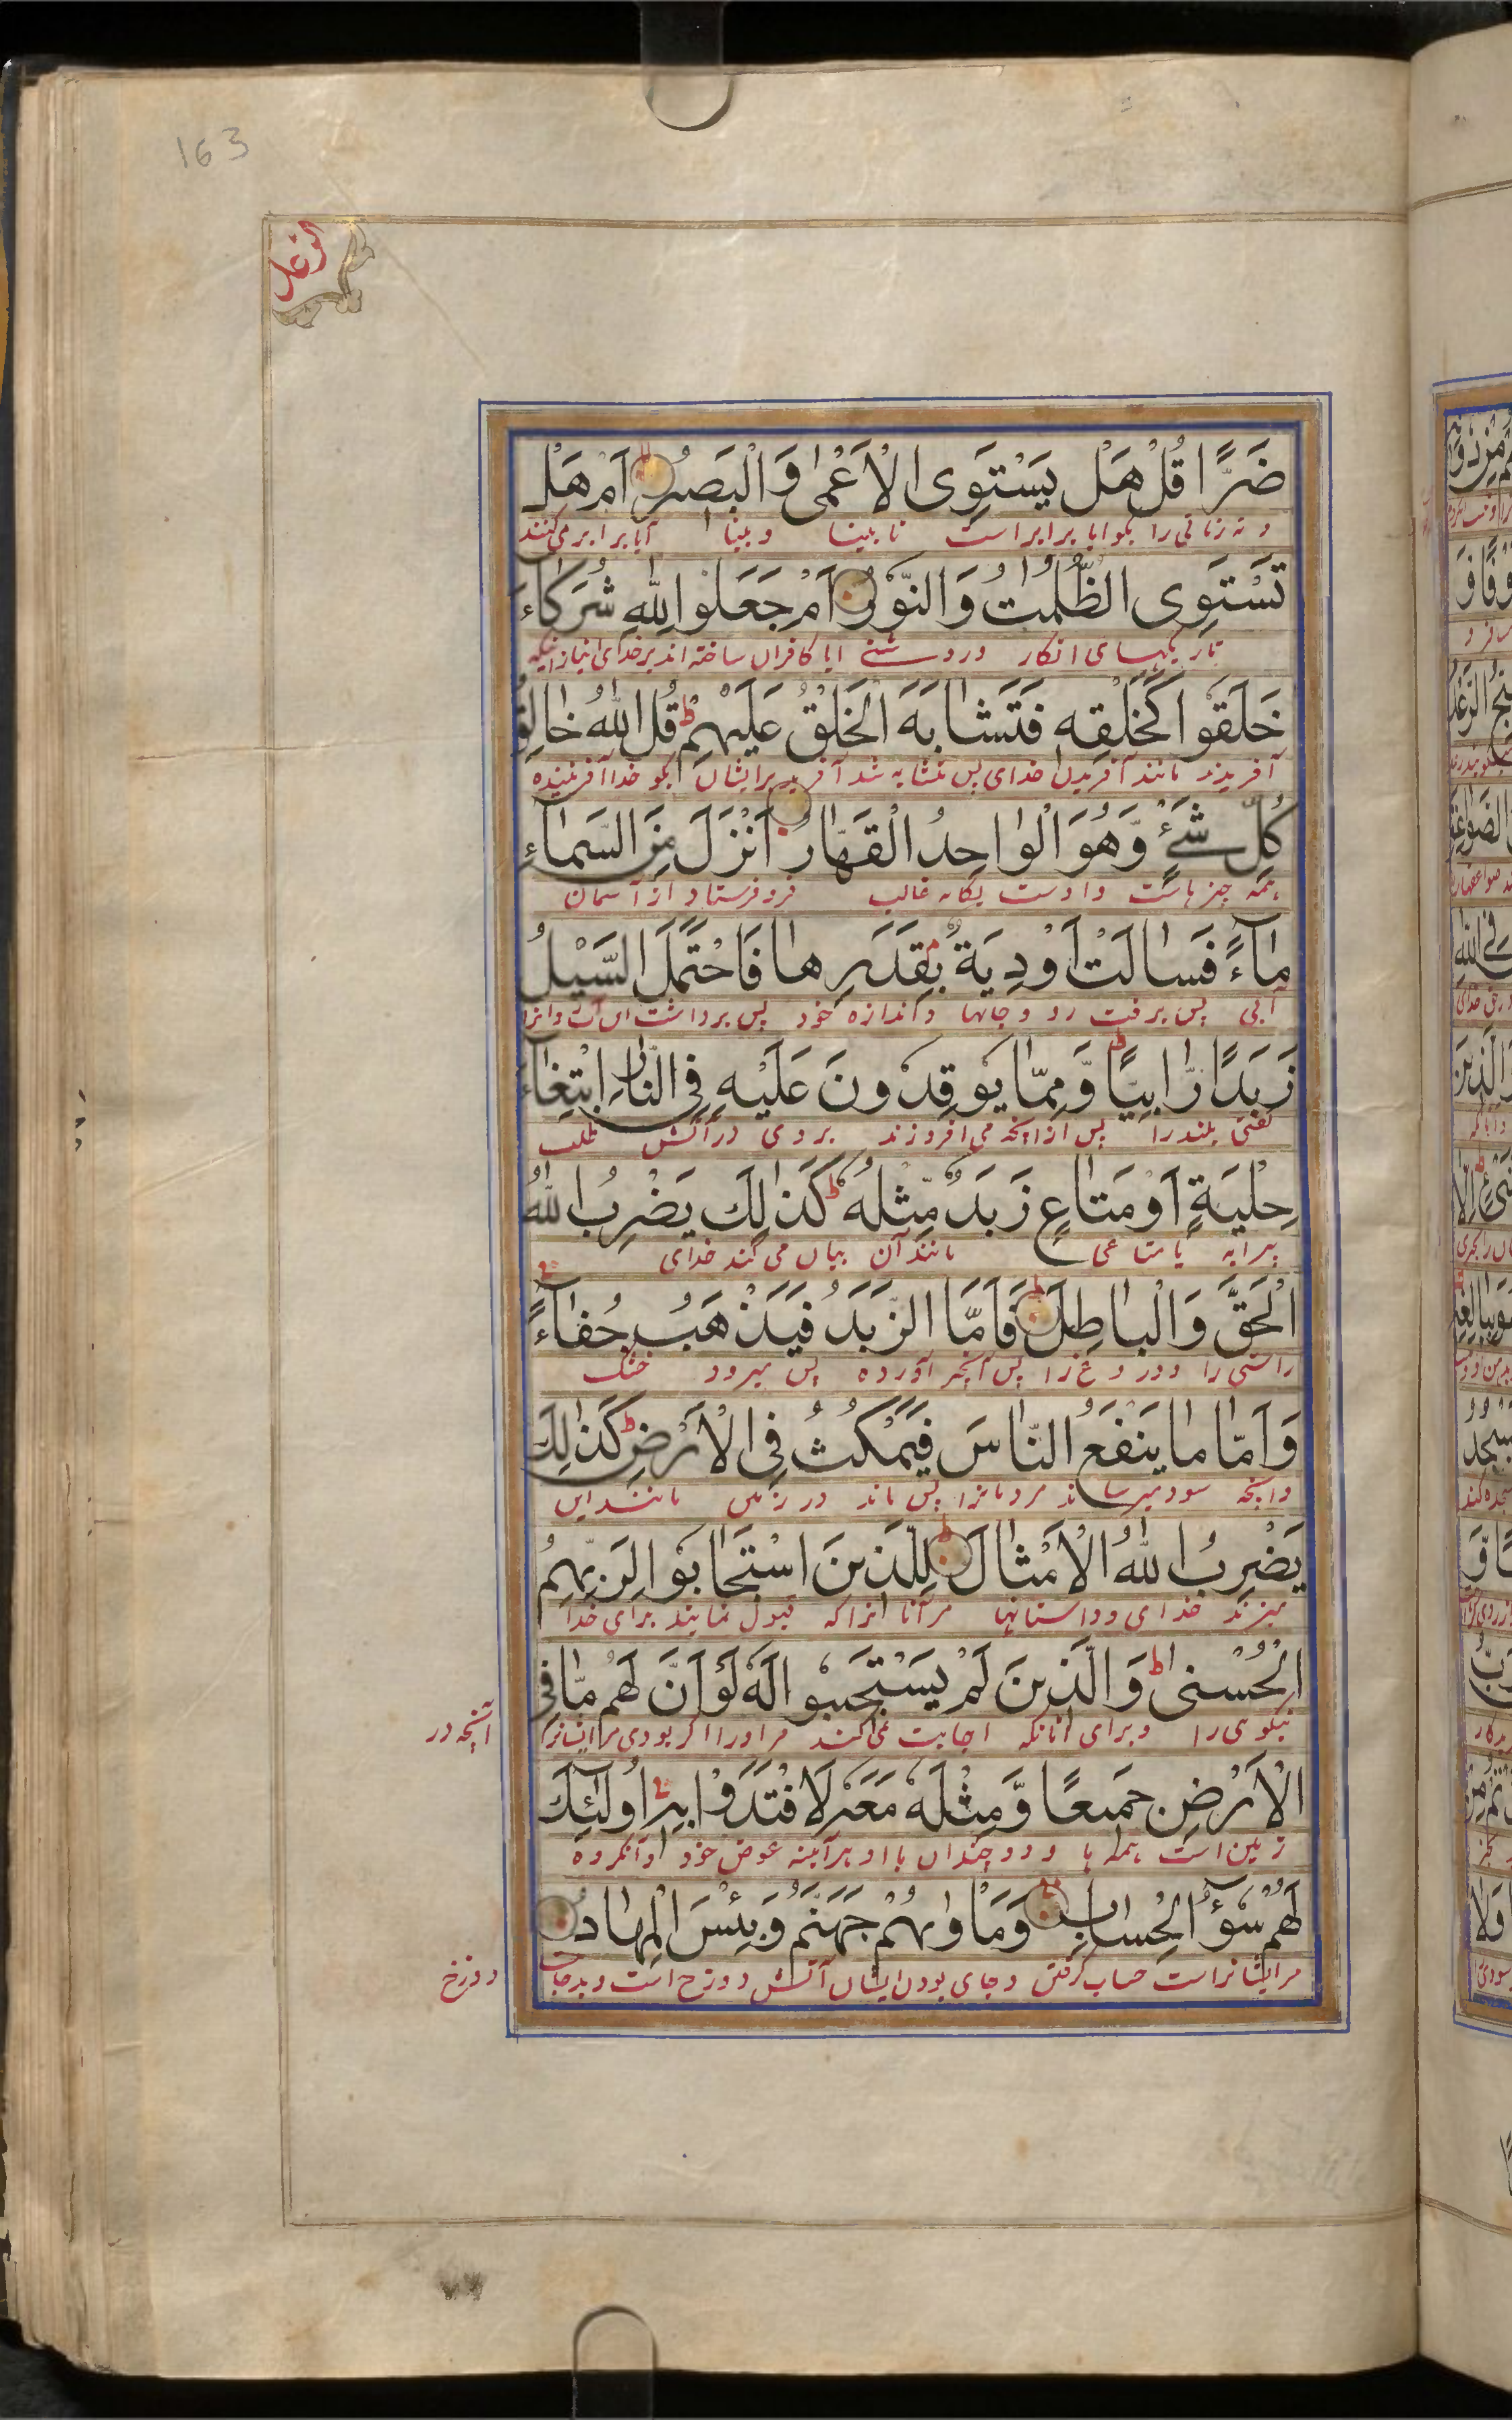 163
الرعد
ضَرًّا قُلْ هَلْ يَسْتَوِى الْاَعْمٰى وَالْبَصِيْرُ اَمْ هَلْ
و نه زیانی را بگو ایا برابر است نابینا و بینا آیا برابر می‌کنند
تَسْتَوِى الظُّلُمٰتُ وَالنُّوْرُ اَمْ جَعَلُوْا لِلّٰهِ شُرَكَاءَ
تاریکیهای انکار و روشنی ایا کافران ساخته اند بر خدای انبازانیکه
خَلَقُوْا كَخَلْقِهٖ فَتَشَابَهَ الْخَلْقُ عَلَيْهِمْ ط قُلِ اللّٰهُ خَالِقُ
آفریدند مانند آفریدن خدای پس متشابه شد آفرید برایشان بگو خدا آفریننده
كُلِّ شَیْءٍ وَّهُوَ الْوٰاحِدُ الْقَهّٰارُ اَنْزَلَ مِنَ السَّمٰآءِ
همه چیزهاست و اوست یگانه غالب فرو فرستاد از آسمان
مٰآءً فَسٰالَتْ اَوْدِيَةٌ بِقَدَرِهٰا فَاحْتَمَلَ السَّيْلُ
آبی پس برفت رودجانها و اندازه خود پس برداشت ان
زَبَدًا رّٰابِيًا ط وَّمِمّٰا يُوْقِدُوْنَ عَلَيْهِ فِى النّٰارِ ابْتِغٰاءَ
کفی بلند را پس از انچه می افروزند بر وی در آتش طلب
حِلْيَةٍ اَوْ مَتٰاعٍ زَبَدٌ مِّثْلُهٗ ط كَذٰلِكَ يَضْرِبُ اللّٰهُ
پیرایه یا متاعی مانند آن بیان می کند خدای
الْحَقَّ وَالْبٰاطِلَ ط فَاَمَّا الزَّبَدُ فَيَذْهَبُ جُفٰآءً
راستی را و دروغ را پس آنچه آورده پس میرود خشک
وَاَمّٰا مٰا يَنْفَعُ النّٰاسَ فَيَمْكُثُ فِى الْاَرْضِ ط كَذٰلِكَ
و انچه سود میرساند مردمانرا پس ماند در زمین مانند این
يَضْرِبُ اللّٰهُ الْاَمْثٰالَ ط لِلَّذِيْنَ اسْتَجٰابُوْا لِرَبِّهِمُ
میزند خدای و داستانها مر آنانرا که قبول نمایند برای خدا
الْحُسْنٰى ط وَالَّذِيْنَ لَمْ يَسْتَجِيْبُوْا لَهٗ لَوْ اَنَّ لَهُمْ مّٰا فِى
نیکویی را و برای آنانکه اجابت نمی‌کنند مر او را اگر بودی مر ایشانرا آنچه در
الْاَرْضِ جَمِيْعًا وَّمِثْلَهٗ مَعَهٗ لَافْتَدَوْا بِهٖ اُولٰئِكَ
زمین است همه ها و دو چندان با او هر آینه عوض خود
لَهُمْ سُوْۤءُ الْحِسٰابِ وَمَاْوٰىهُمْ جَهَنَّمُ وَبِئْسَ الْمِهٰادُ
مر ایشانراست حساب گرفتن و جای بودن ایشان آتش دوزخ است و بد جای دوزخ